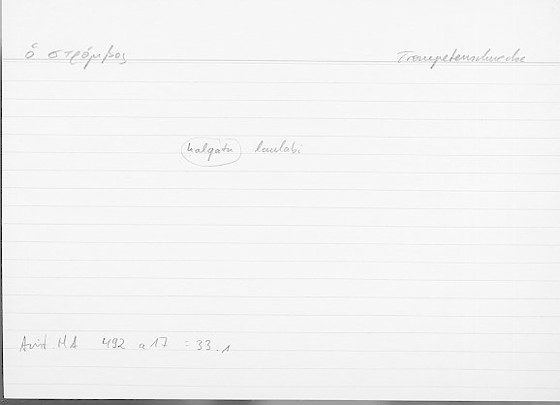 ὁ στρόμβος Trompetenschnecke
halqatu laulabi
Arist. HA 492 a 17 : 33.1